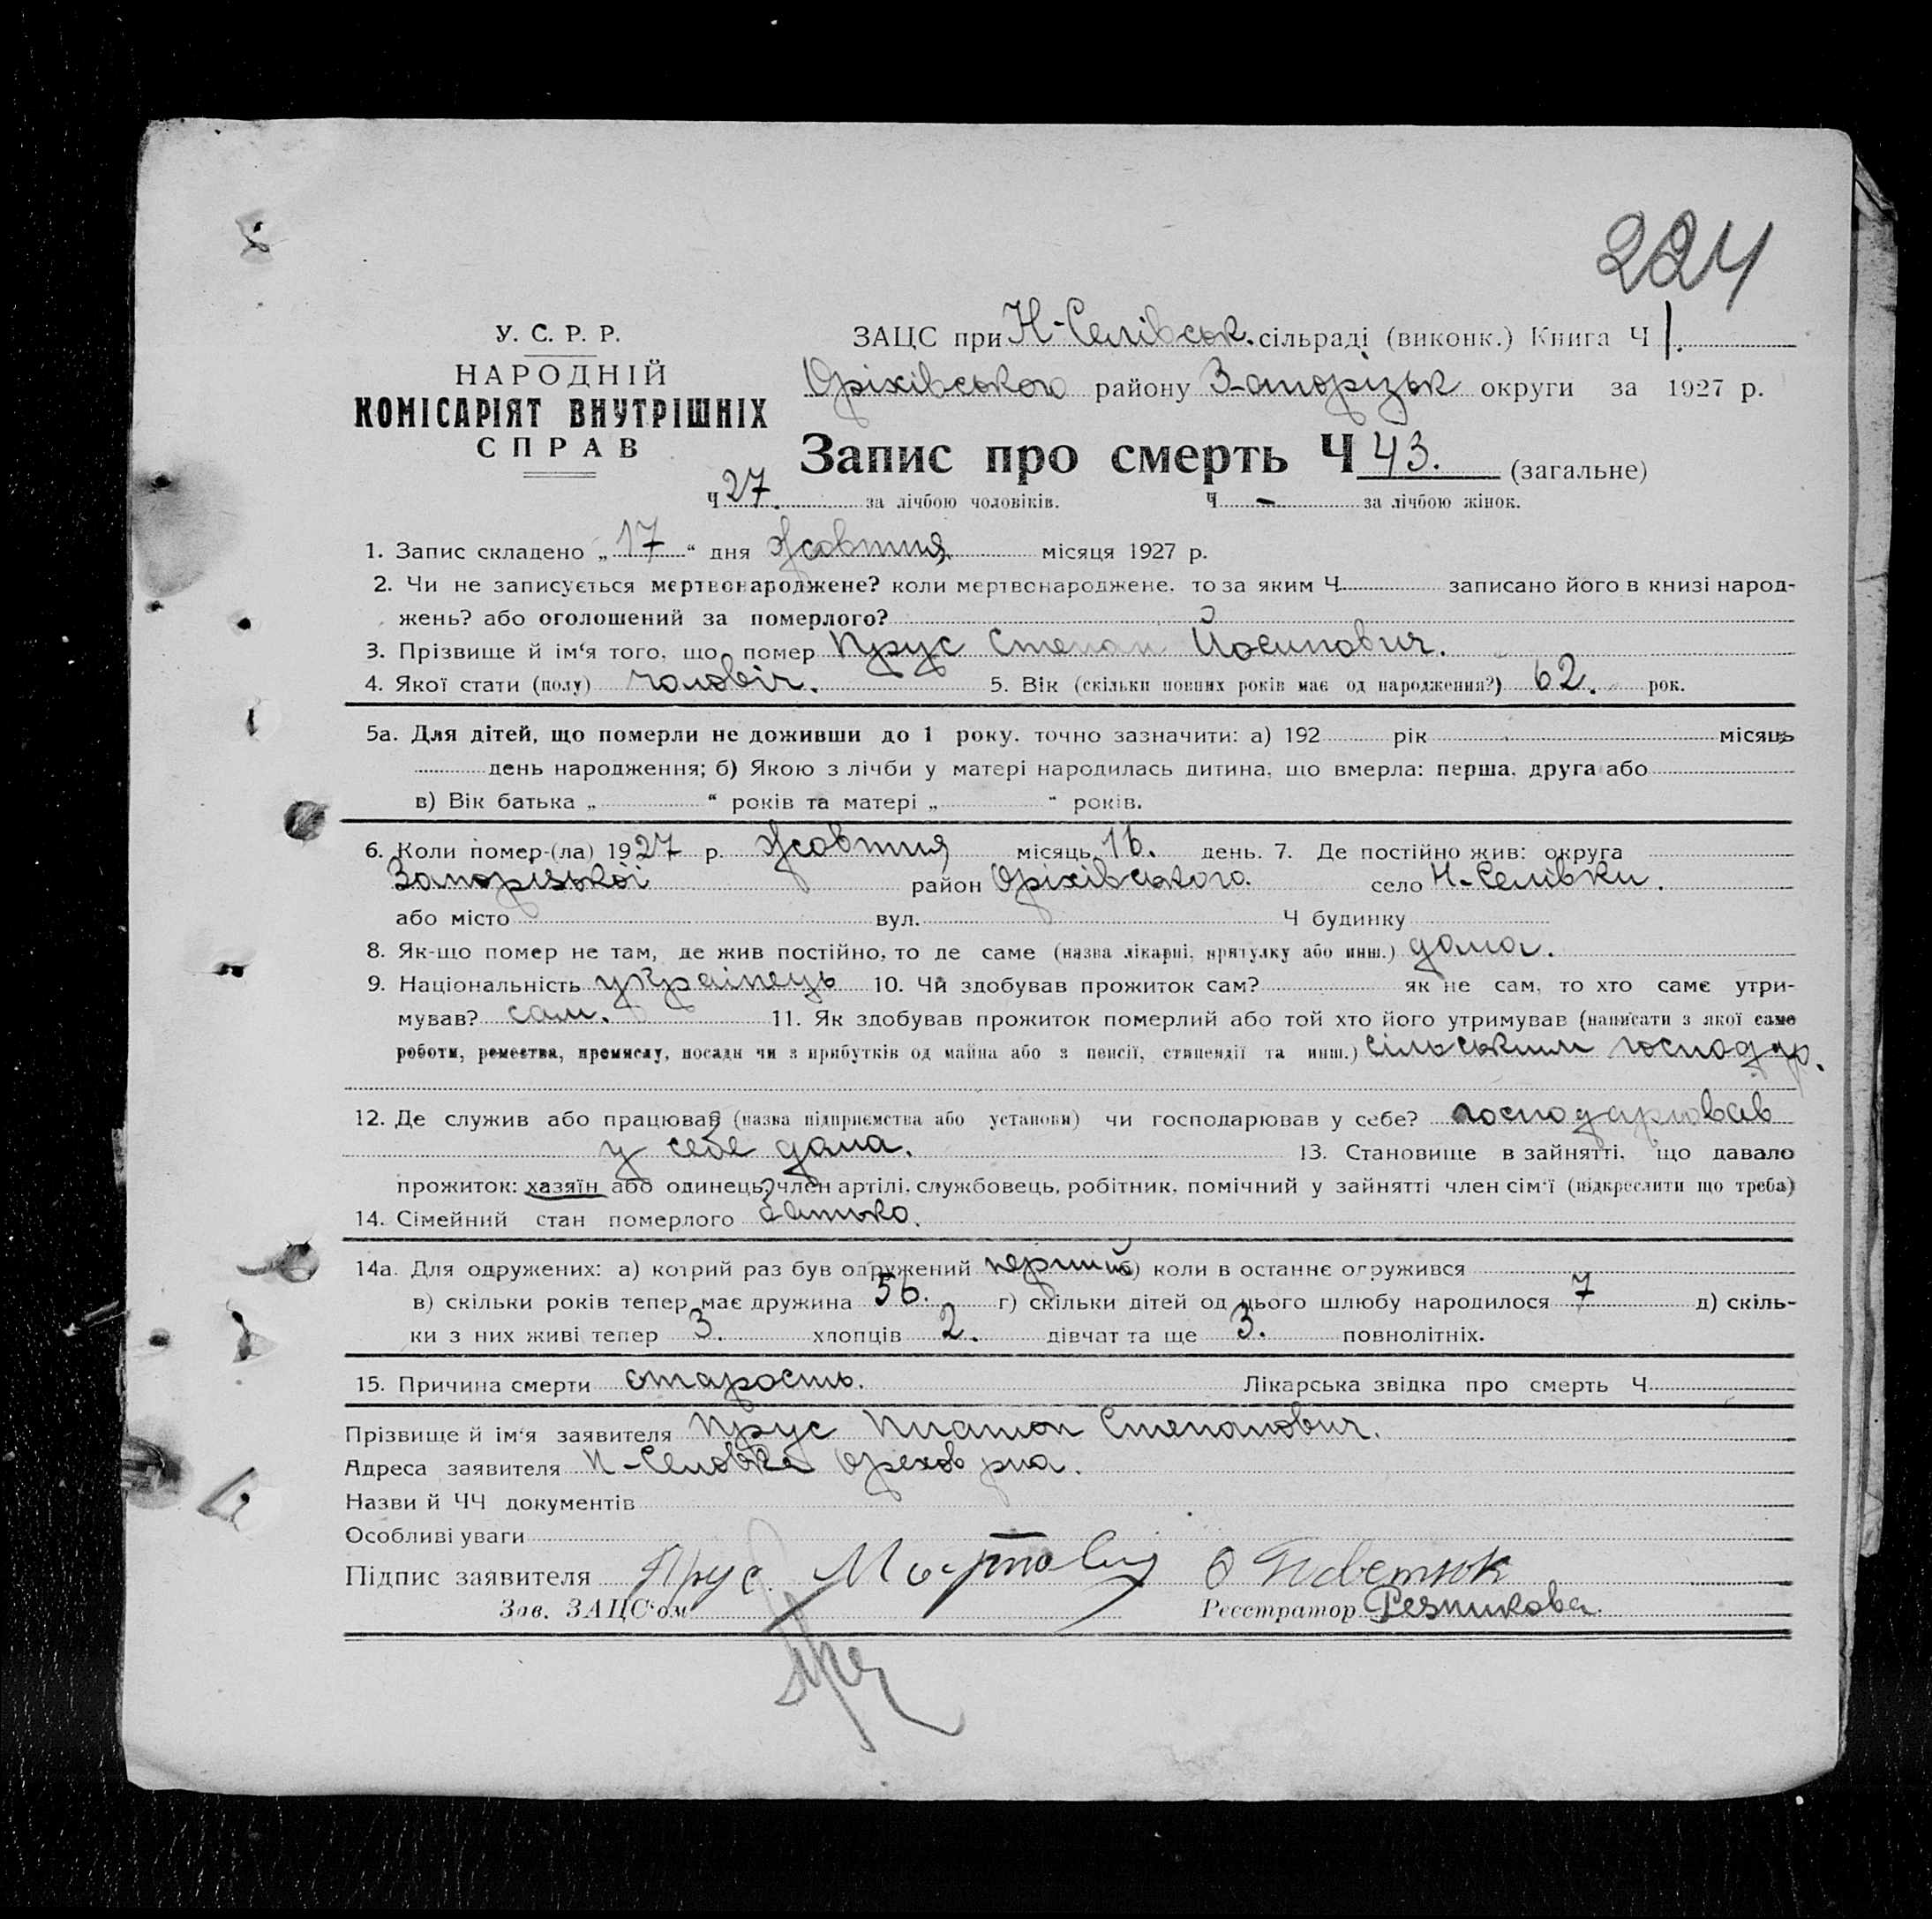 224
У. С. Р. Р.
НАРОДНІЙ
КОМІСАРІЯТ ВНУТРІШНІХ
СПРАВ
ЗАЦС при Н-Селівськ. сільраді (виконк.) Книга Ч 1.
Оріхівського району Запорізьк округи за 1927 р.
Запис про смерть Ч 43. (загальне)
Ч 27. за лічбою чоловіків. Ч - за лічбою жінок.
1. Запис складено „ 17 “ дня жовтня місяця 1927 р.
2. Чи не записується мертвонароджене? коли мертвонароджене, то за яким Ч записано його в книзі народ-
жень? або оголошений за померлого?
3. Прізвище й ім‘я того, що помер Прус Степан Йосипович.
4. Якої стати (полу) чоловіч. 5. Вік (скільки повних років має од народження?) 62. рок.
5а. Для дітей, що померли не доживши до 1 року, точно зазначити: а) 192 рік місяць
день народження; б) Якою з лічби у матері народилась дитина, що вмерла: перша, друга або
в) Вік батька „ “ років та матері „ “ років.
6. Коли помер-(ла) 1927 р. жовтня місяць 16. день. 7. Де постійно жив: округа
Запорізької район Оріхівського село Н-Селівки.
або місто вул. Ч будинку
8. Як-що помер не там, де жив постійно, то де саме (назва лікарні, притулку або инш.) дома.
9. Національність українець 10. Чи здобував прожиток сам? як не сам, то хто саме утри-
мував? сам. 11. Як здобував прожиток померлий або той хто його утримував (написати з якої саме
роботи, ремества, промислу, посади чи з прибутків од майна або з пенсії, стипендії та инш.) сільським господар.
12. Де служив або працював (назва підприємства або установи) чи господарював у себе? господарював
у себе дома. 13. Становище в зайнятті, що давало
прожиток: хазяїн або одинець, член артілі, службовець, робітник, помічний у зайнятті член сім‘ї (підкреслити що треба)
14. Сімейний стан померлого батько.
14а. Для одружених: а) котрий раз був одружений перший б) коли в останнє одружився
в) скільки років тепер має дружина 56. г) скільки дітей од цього шлюбу народилося 7 д) скіль-
ки з них живі тепер 3. хлопців 2. дівчат та ще 3. повнолітніх.
15. Причина смерти старость. Лікарська звідка про смерть Ч
Прізвище й ім‘я заявителя Прус Платон Степанович.
Адреса заявителя Н-Селовка Орехов рна.
Назви й ЧЧ документів
Особливі уваги
Підпис заявителя Прус.
Зав. ЗАЦС‘ом Реєстратор Резникова.